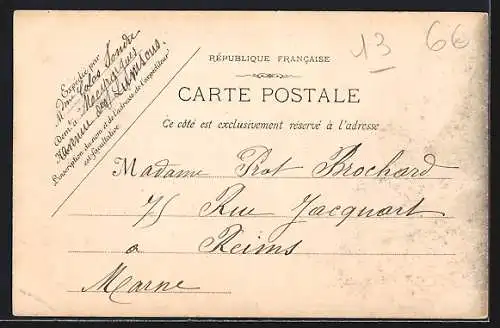 Expédié par
M
Demt à
Avenue des
L'inscription du nom et de l'adresse de l'expéditeur
est facultative.
13
66
RÉPUBLIQUE FRANÇAISE
CARTE POSTALE
Ce côté est exclusivement réservé à l'adresse
Madame Prot Brochard
75 Rue Jacquart
a Reims
Marne